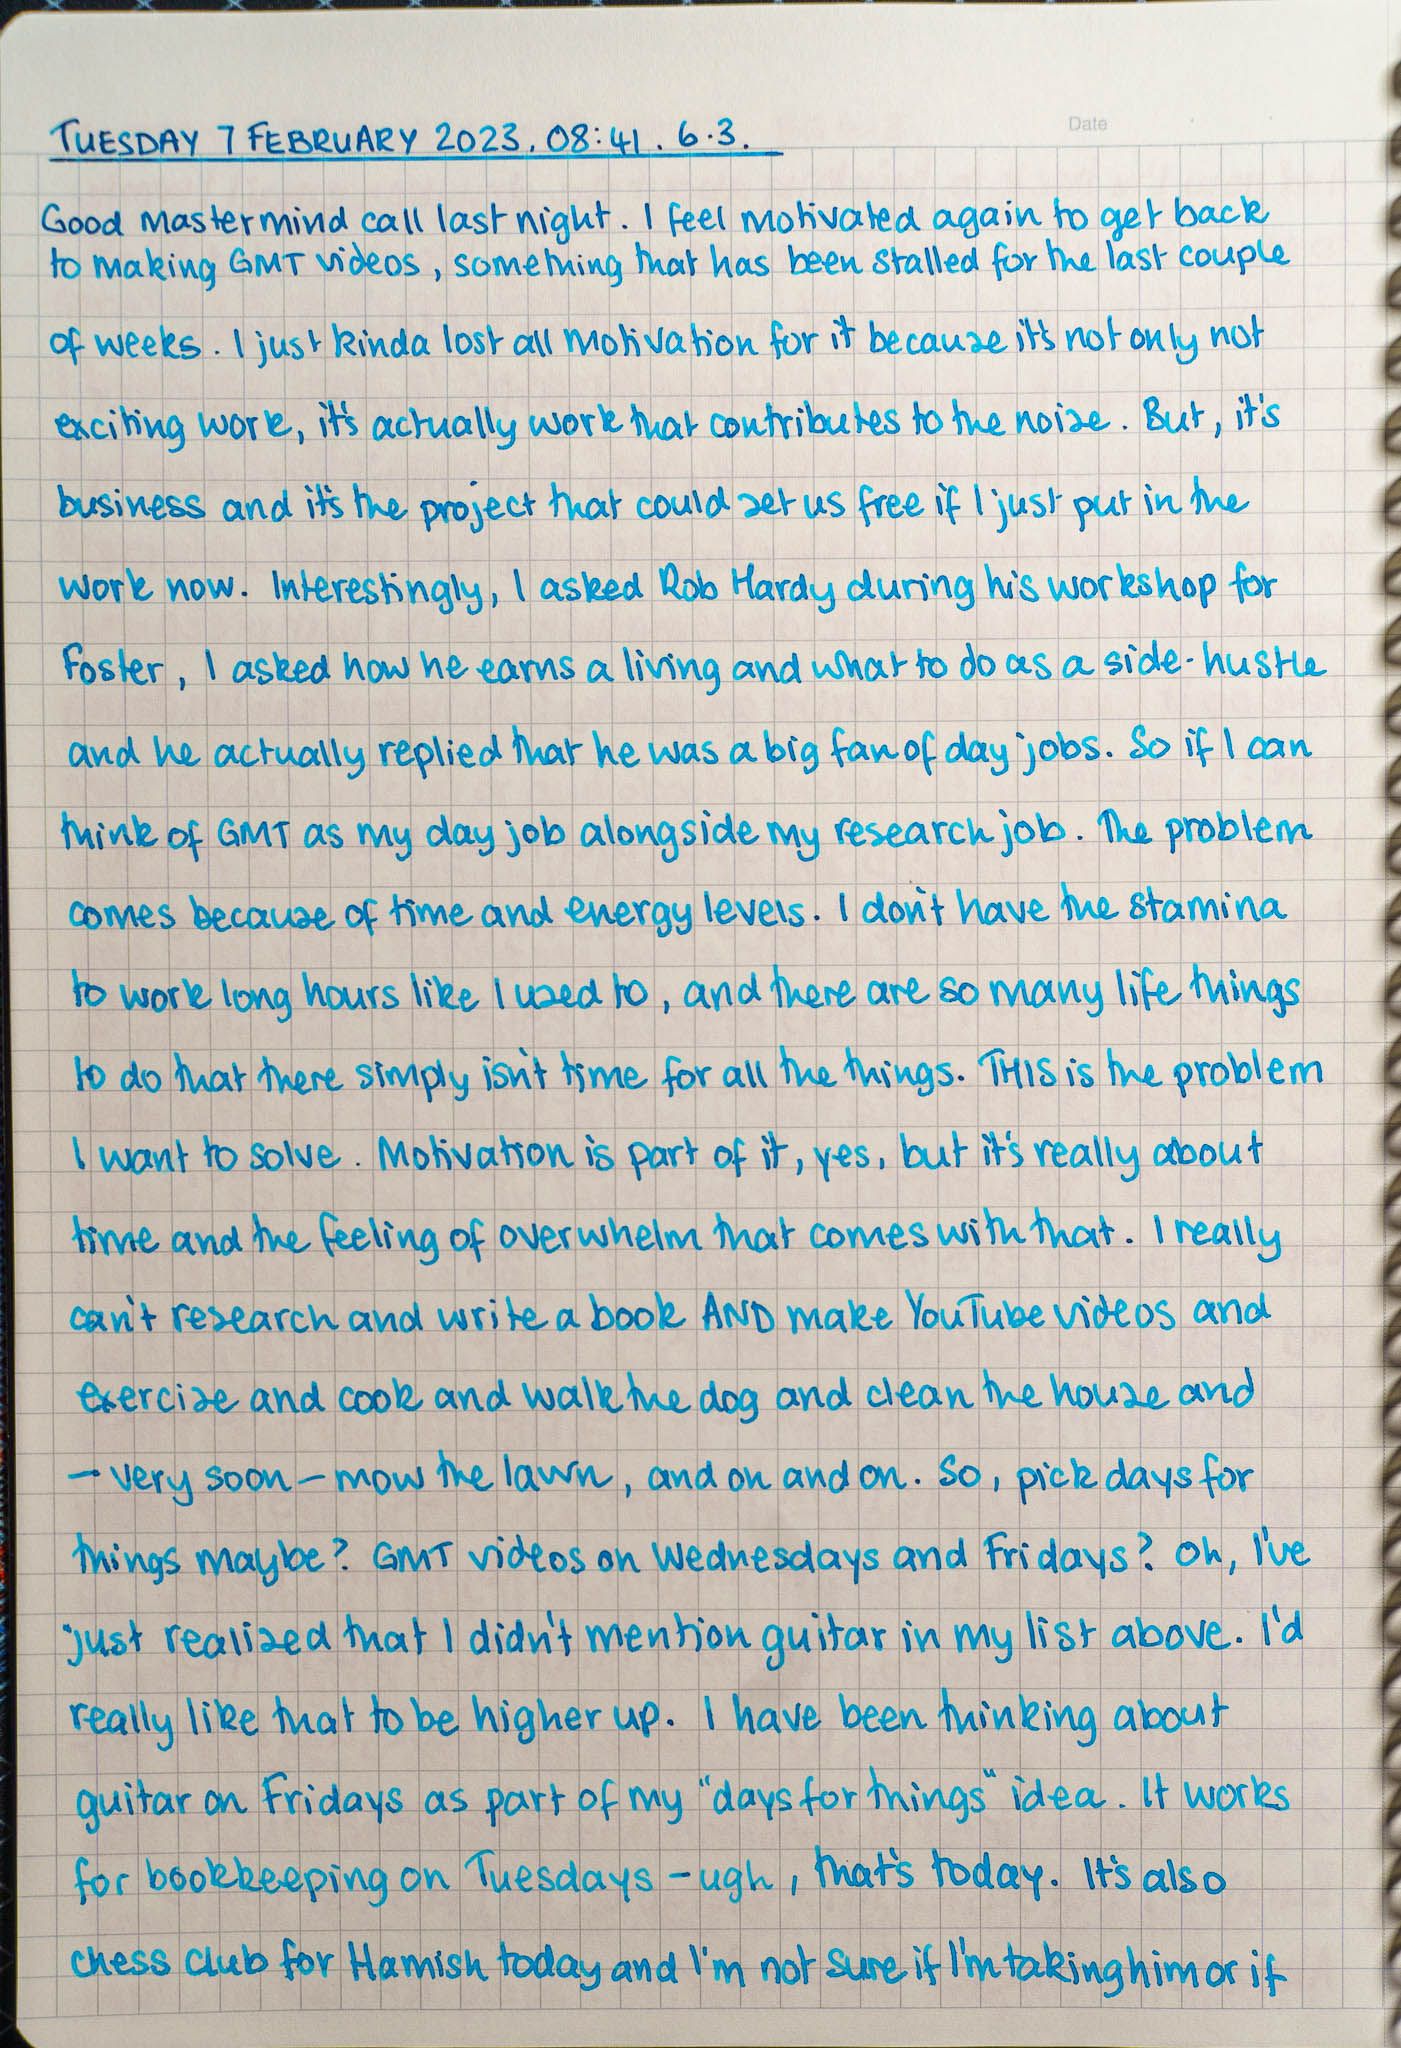 TUESDAY 7 FEBRUARY 2023. 08:41. 6.3.
Date
Good mastermind call last night. I feel motivated again to get back
to making GMT videos, something that has been stalled for the last couple
of weeks. I just kinda lost all motivation for it because it's not only not
exciting work, it's actually work that contributes to the noise. But, it's
business and it's the project that could set us free if I just put in the
work now. Interestingly, I asked Rob Hardy during his workshop for
Foster, I asked how he earns a living and what to do as a side-hustle
and he actually replied that he was a big fan of day jobs. So if I can
think of GMT as my day job alongside my research job. The problem
comes because of time and energy levels. I don't have the stamina
to work long hours like I used to, and there are so many life things
to do that there simply isn't time for all the things. THIS is the problem
I want to solve. Motivation is part of it, yes, but it's really about
time and the feeling of overwhelm that comes with that. I really
can't research and write a book AND make YouTube videos and
exercise and cook and walk the dog and clean the house and
- very soon - mow the lawn, and on and on. So, pick days for
things maybe? GMT videos on Wednesdays and Fridays? Oh, I've
just realised that I didn't mention guitar in my list above. I'd
really like that to be higher up. I have been thinking about
guitar on Fridays as part of my "days for things" idea. It works
for bookkeeping on Tuesdays - ugh, that's today. It's also
chess club for Hamish today and I'm not sure if I'm taking him or if